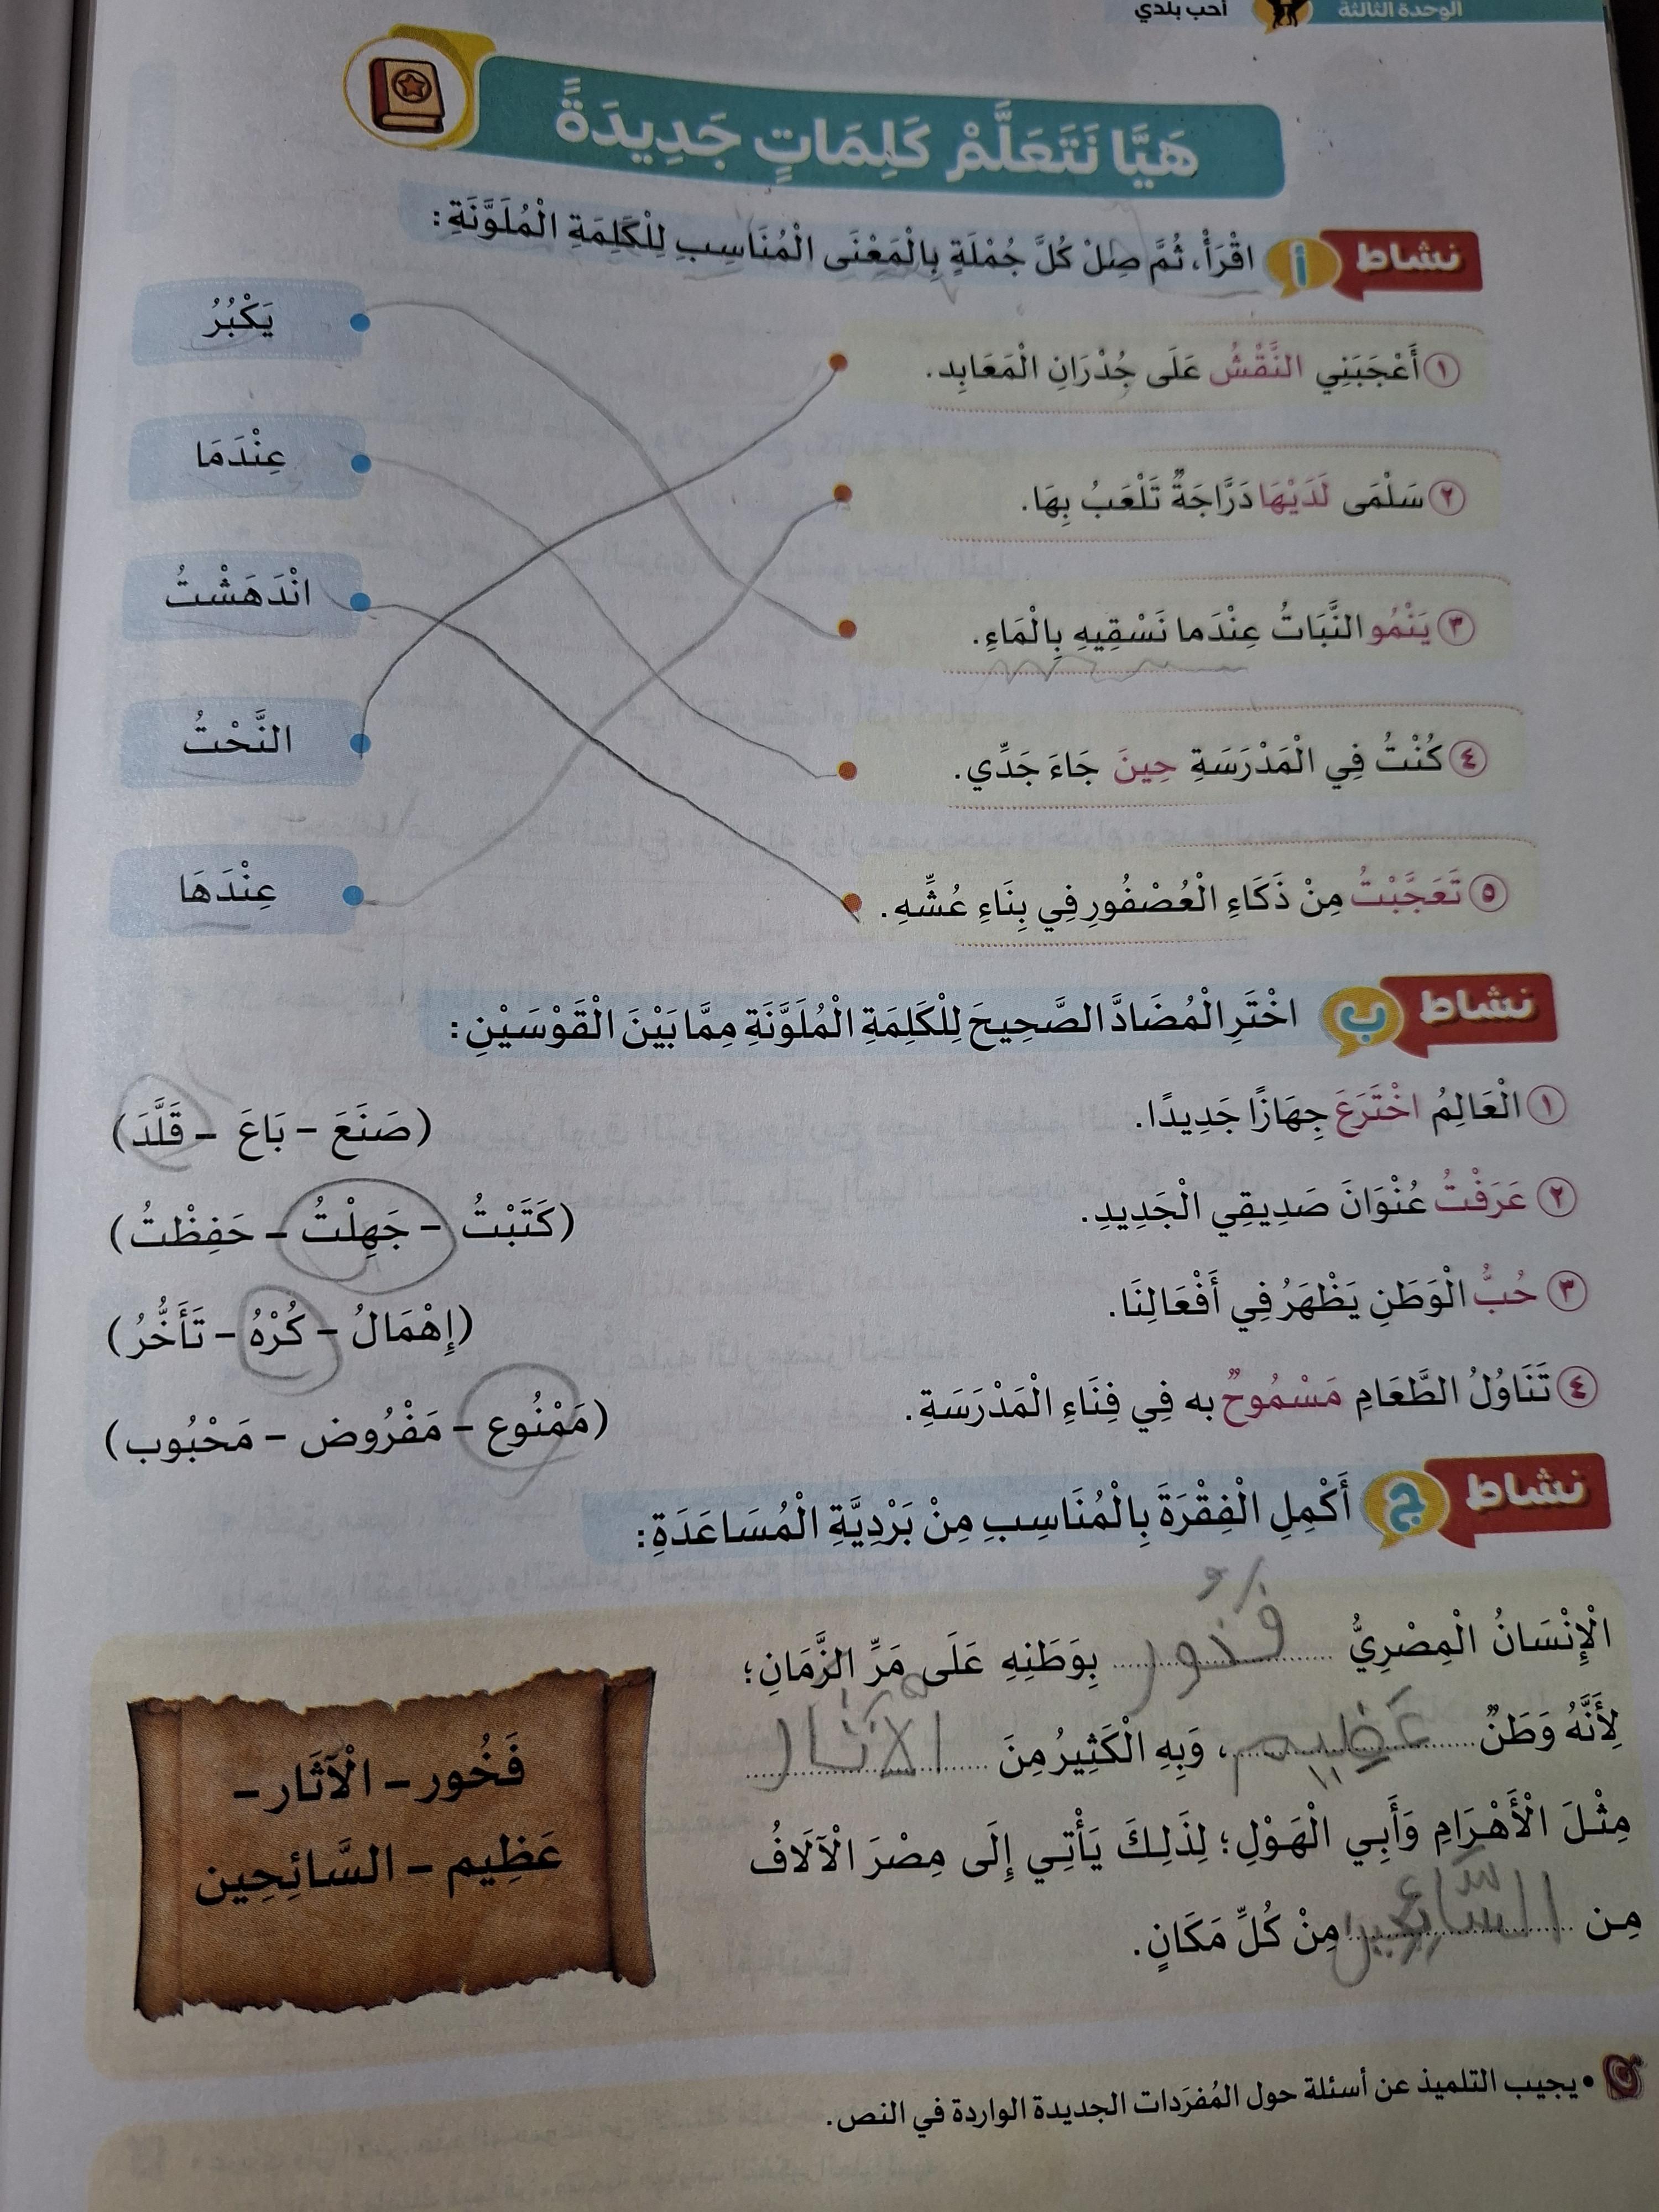 الوحدة الثالثة
أحب بلدي
هَيَّا نَتَعَلَّمْ كَلِمَاتٍ جَدِيدَةً
نشاط أ اقْرَأْ، ثُمَّ صِلْ كُلَّ جُمْلَةٍ بِالْمَعْنَى الْمُنَاسِبِ لِلْكَلِمَةِ الْمُلَوَّنَةِ:
١ أَعْجَبَنِي النَّقْشُ عَلَى جُدْرَانِ الْمَعَابِد.
يَكْبُرُ
٢ سَلْمَى لَدَيْهَا دَرَّاجَةٌ تَلْعَبُ بِهَا.
عِنْدَمَا
٣ يَنْمُو النَّبَاتُ عِنْدَما نَسْقِيهِ بِالْمَاءِ.
انْدَهَشْتُ
٤ كُنْتُ فِي الْمَدْرَسَةِ حِينَ جَاءَ جَدِّي.
النَّحْتُ
٥ تَعَجَّبْتُ مِنْ ذَكَاءِ الْعُصْفُورِ فِي بِنَاءِ عُشِّهِ.
عِنْدَهَا
نشاط ب اخْتَرِ الْمُضَادَّ الصَّحِيحَ لِلْكَلِمَةِ الْمُلَوَّنَةِ مِمَّا بَيْنَ الْقَوْسَيْنِ:
١ الْعَالِمُ اخْتَرَعَ جِهَازًا جَدِيدًا. (صَنَعَ – بَاعَ – قَلَّدَ)
٢ عَرَفْتُ عُنْوَانَ صَدِيقِي الْجَدِيدِ. (كَتَبْتُ – جَهِلْتُ – حَفِظْتُ)
٣ حُبُّ الْوَطَنِ يَظْهَرُ فِي أَفْعَالِنَا. (إِهْمَالُ – كُرْهُ – تَأَخُّرُ)
٤ تَنَاوُلُ الطَّعَامِ مَسْمُوحٌ به فِي فِنَاءِ الْمَدْرَسَةِ. (مَمْنُوع – مَفْرُوض – مَحْبُوب)
نشاط ج أَكْمِلِ الْفِقْرَةَ بِالْمُنَاسِبِ مِنْ بَرْدِيَّةِ الْمُسَاعَدَةِ:
الْإِنْسَانُ الْمِصْرِيُّ فخور بِوَطَنِهِ عَلَى مَرِّ الزَّمَانِ؛
لِأَنَّهُ وَطَنٌ عَظيم، وَبِهِ الْكَثِيرُ مِنَ الآثار
مِثْلَ الْأَهْرَامِ وَأَبِي الْهَوْلِ؛ لِذَلِكَ يَأْتِي إِلَى مِصْرَ الْآلَافُ
مِن السَّائِحين مِنْ كُلِّ مَكَانٍ.
فَخُور – الْآثَار –
عَظِيم – السَّائِحِين
• يجيب التلميذ عن أسئلة حول المُفرَدات الجديدة الواردة في النص.